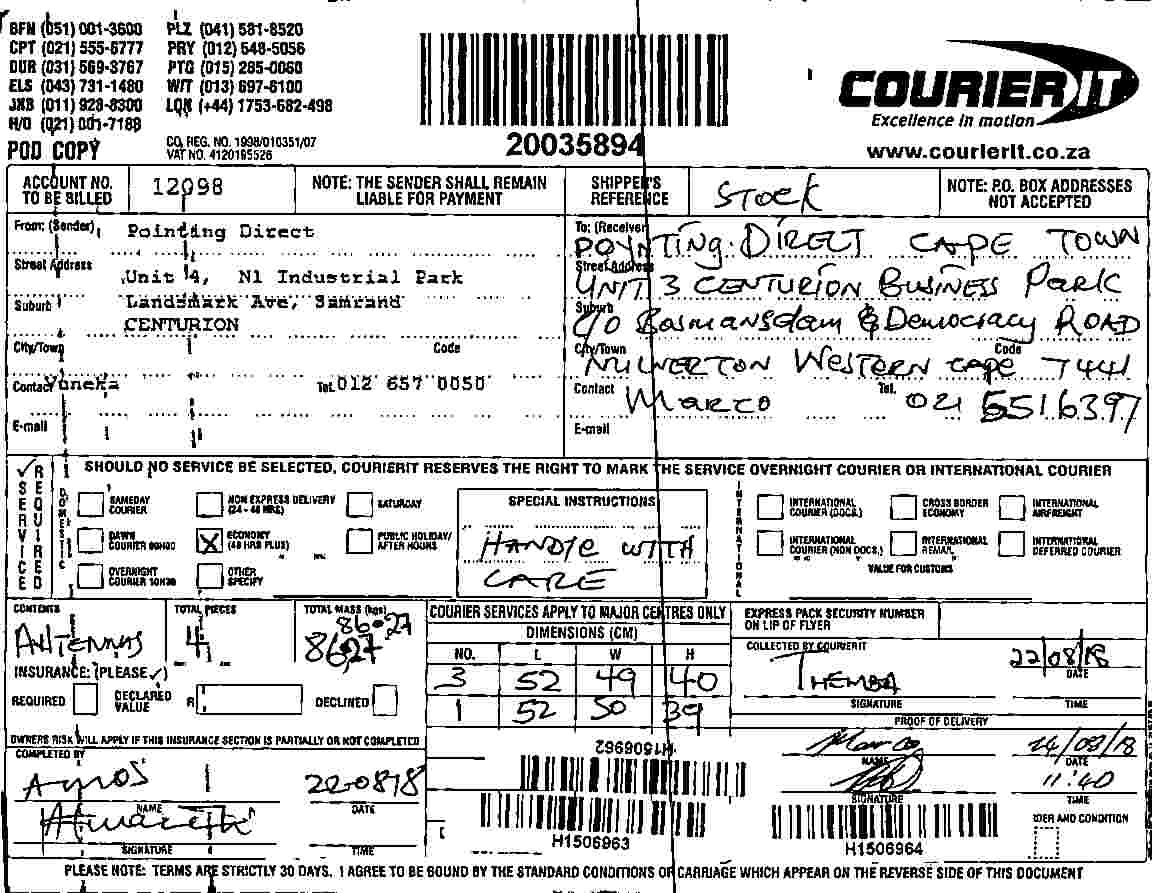 BFN (051) 001-3600 PLZ (041) 581-8520
CPT (021) 555-6777 PRY (012) 548-5056
DUR (031) 569-3767 PTG (015) 285-0060
ELS (043) 731-1480 WIT (013) 697-6100
JNB (011) 928-8300 LON (+44) 1753-682-498
H/O (021) 001-7188
POD COPY
CO. REG. NO. 1998/010351/07
VAT NO. 4120195526
20035894
COURIERIT
Excellence in motion
www.courierit.co.za
ACCOUNT NO. TO BE BILLED 12098
NOTE: THE SENDER SHALL REMAIN LIABLE FOR PAYMENT
SHIPPER'S REFERENCE STOCK
NOTE: P.O. BOX ADDRESSES NOT ACCEPTED
From: (Sender) Pointing Direct
Street Address Unit 4, N1 Industrial Park
Suburb Landsmark Ave, Samrand
CENTURION
City/Town Code
Contact Yoneka Tel. 012 657 0050
E-mail
To: (Receiver) POYNTING DIRECT CAPE TOWN
Street Address UNIT 3 CENTURION BUSINESS PARK
Suburb C/O Bosmansdam & Democracy ROAD
City/Town MILNERTON WESTERN CAPE Code 7441
Contact MARCO Tel. 021 5516397
E-mail
✓ SERVICE REQUIRED
SHOULD NO SERVICE BE SELECTED, COURIERIT RESERVES THE RIGHT TO MARK THE SERVICE OVERNIGHT COURIER OR INTERNATIONAL COURIER
DOMESTIC
SAMEDAY COURIER
NON EXPRESS DELIVERY (24 - 48 HRS)
SATURDAY
DAWN COURIER 09H00
X ECONOMY (48 HRS PLUS)
PUBLIC HOLIDAY/ AFTER HOURS
OVERNIGHT COURIER 10H30
OTHER SPECIFY
SPECIAL INSTRUCTIONS
HANDLE WITH
CARE
INTERNATIONAL
INTERNATIONAL COURIER (DOCS.)
CROSS BORDER ECONOMY
INTERNATIONAL AIRFREIGHT
INTERNATIONAL COURIER (NON DOCS.)
INTERNATIONAL REMAIL
INTERNATIONAL DEFERRED COURIER
VALUE FOR CUSTOMS
CONTENTS ANTENNAS
TOTAL PIECES 4
TOTAL MASS (kgs) 86.27
86,27
INSURANCE: (PLEASE ✓)
REQUIRED DECLARED VALUE R DECLINED
OWNERS RISK WILL APPLY IF THIS INSURANCE SECTION IS PARTIALLY OR NOT COMPLETED
COURIER SERVICES APPLY TO MAJOR CENTRES ONLY
DIMENSIONS (CM)
NO. L W H
3 52 49 40
1 52 50 39
EXPRESS PACK SECURITY NUMBER ON LIP OF FLYER
COLLECTED BY COURIERIT
THEMBA 22/08/18
SIGNATURE DATE
TIME
PROOF OF DELIVERY
Marco 24/08/18
NAME DATE
11:40
SIGNATURE TIME
COMPLETED BY
22-08-18
NAME DATE
SIGNATURE TIME
H1506962
H1506963
H1506964
DER AND CONDITION
PLEASE NOTE: TERMS ARE STRICTLY 30 DAYS. I AGREE TO BE BOUND BY THE STANDARD CONDITIONS OF CARRIAGE WHICH APPEAR ON THE REVERSE SIDE OF THIS DOCUMENT